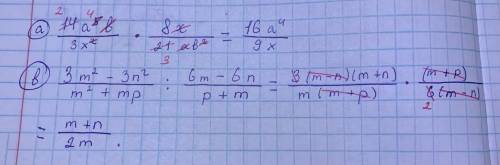 а) 14a⁵b/3x² · 8x/21ab² = 16a⁴/9x
2 4 3
в) 3m² - 3n²/m² + mp : 6m - 6n/p + m = 3(m-n)(m+n)/m(m+p) · (m+p)/6(m-n)
2
= m+n/2m.